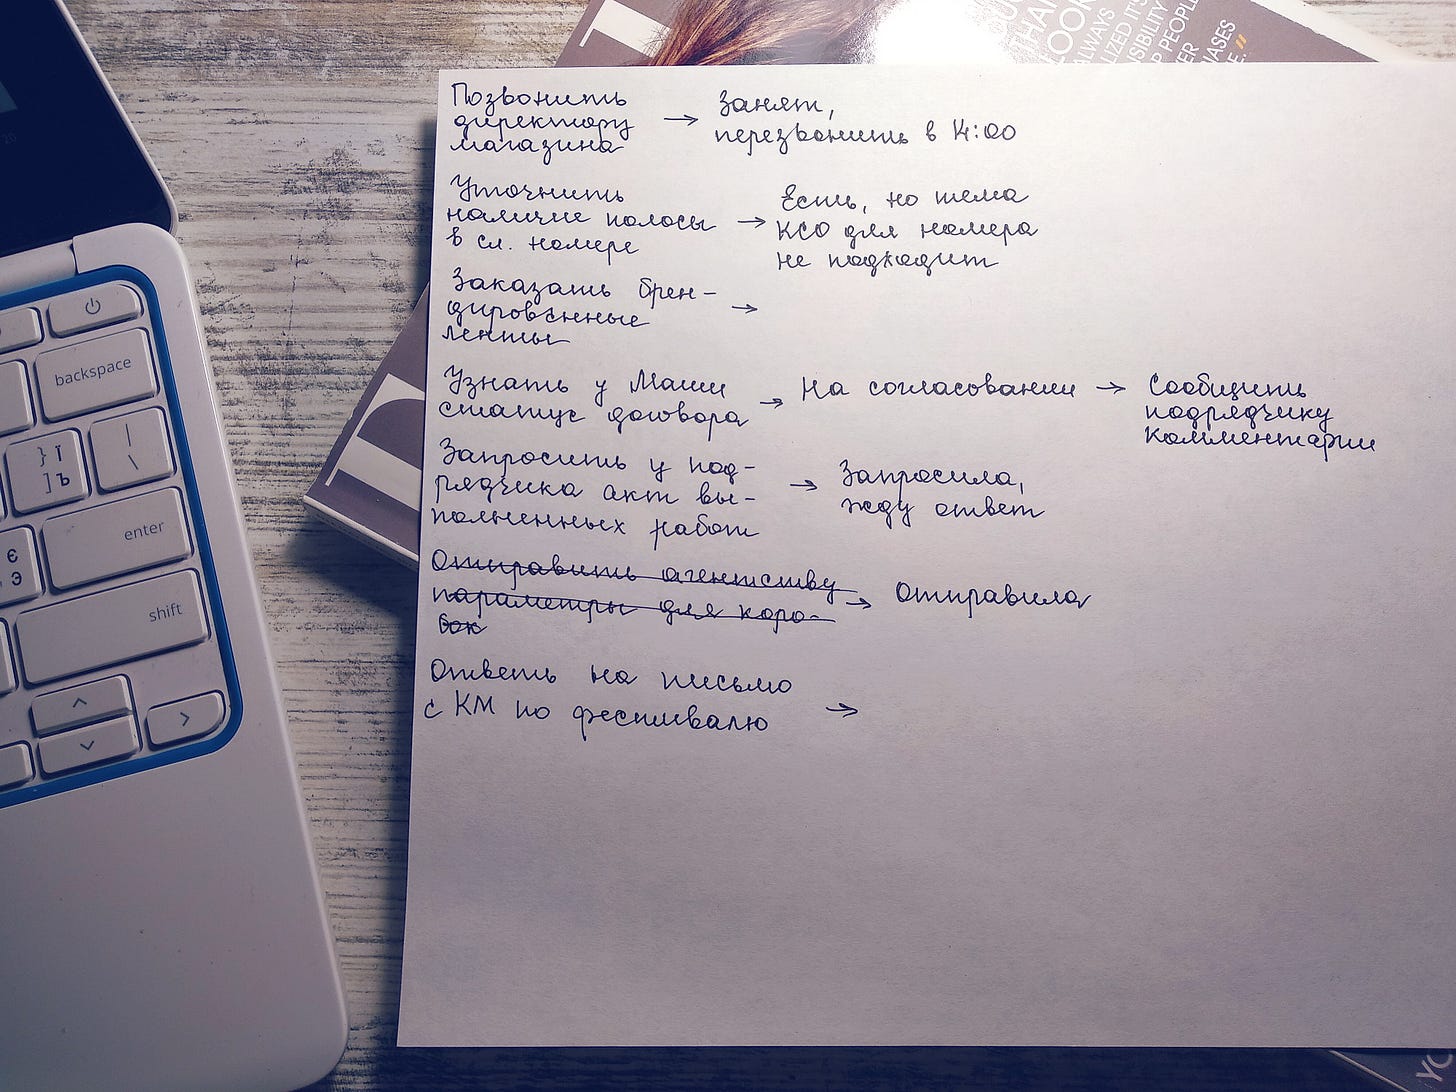 Позвонить
директору
магазина
→ Занят,
перезвонить в 14:00
Уточнить
наличие полосы
в сл. номере
→ Есть, но тема
КСО для номера
не подходит
Заказать брен-
дированные
ленты
→
Узнать у Маши
статус договора
→ На согласовании → Сообщить
подрядчику
комментарии
Запросить у под-
рядчика акт вы-
полненных работ
→ Запросила,
жду ответ
Отправить агентству
параметры для коро-
бок
→ Отправила
Ответь на письмо
с КМ по фестивалю
→
backspace
} Ї
] Ъ
|
\
enter
Є
Э
shift
THAN
LOOK
ALWAYS
PEOPLE